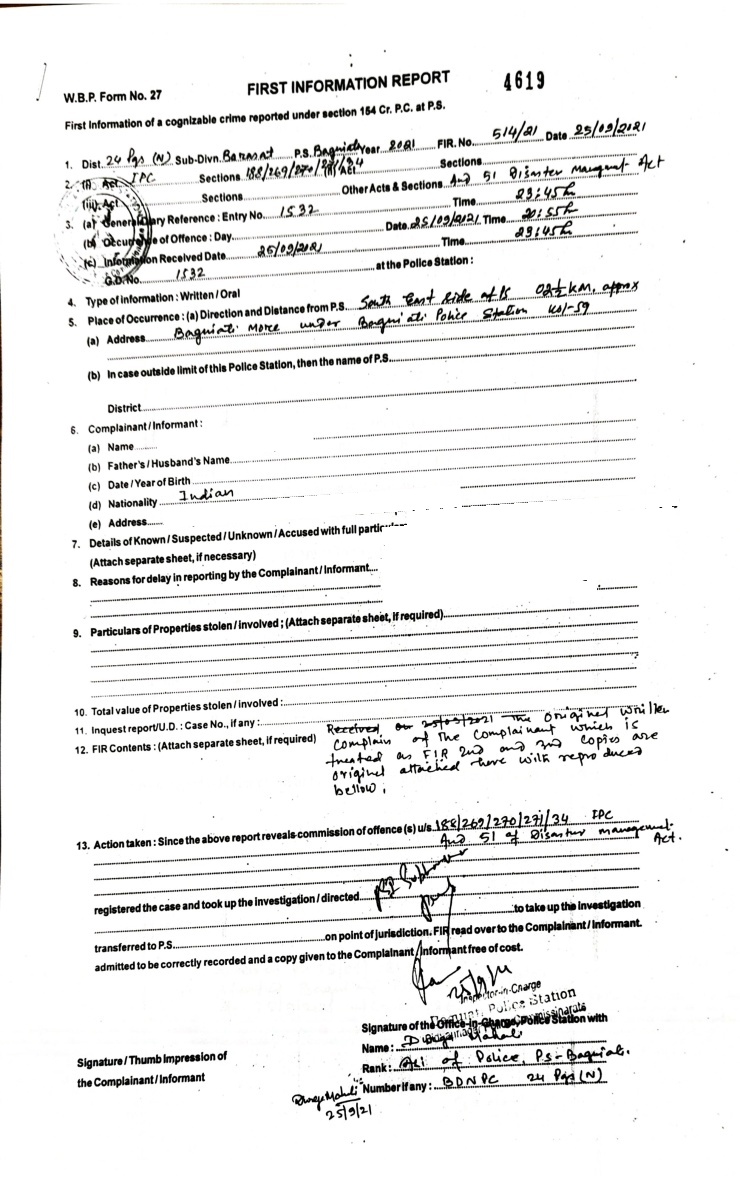 W.B.P. Form No. 27
FIRST INFORMATION REPORT
4619
First Information of a cognizable crime reported under section 154 Cr. P.C. at P.S.
1. Dist. 24 Pgs (N) Sub-Divn. Barasat P.S. Baguiati Year 2021 FIR. No. 514/21 Date 25/09/2021
2. (i) Act IPC Sections 188/269/270/271/34 Sections
(iii) Act Sections Other Acts & Sections And 51 Disaster Mangment Act
3. (a) General Diary Reference : Entry No. 1532 Time 23:45h
(b) Occurrence of Offence : Day Date 25/09/2021, Time 20:55h
(c) Information Received Date 25/09/2021 Time 23:45h
G.D. No. 1532 at the Police Station :
4. Type of information : Written / Oral
5. Place of Occurrence : (a) Direction and Distance from P.S. South East side of PS 02½ KM. approx
(a) Address Baguiati More under Baguiati Police Station Kol-59
(b) In case outside limit of this Police Station, then the name of P.S.
District
6. Complainant / Informant :
(a) Name
(b) Father's / Husband's Name
(c) Date / Year of Birth
(d) Nationality Indian
(e) Address
7. Details of Known / Suspected / Unknown / Accused with full
(Attach separate sheet, if necessary)
8. Reasons for delay in reporting by the Complainant / Informant
9. Particulars of Properties stolen / involved ; (Attach separate sheet, if required)
10. Total value of Properties stolen / involved :
11. Inquest report/U.D. : Case No., if any :
12. FIR Contents : (Attach separate sheet, if required) Received on 25/09/2021 The original written
complain of the complainant which is
treated as FIR 2nd and 3rd copies are
original attached here with reproduced
bellow ;
13. Action taken : Since the above report reveals commission of offence (s) u/s. 188/269/270/271/34 IPC
And 51 of Disaster management Act.
registered the case and took up the investigation / directed
to take up the investigation
transferred to P.S. on point of jurisdiction. FIR read over to the Complainant / Informant.
admitted to be correctly recorded and a copy given to the Complainant / Informant free of cost.
25/9/21
Inspector-in-Charge
Police Station
Signature of the Office-in-Charge, Police Station with
Name : Mahali
Signature / Thumb Impression of
the Complainant / Informant
Rank : ASI of Police, PS-Baguiati.
Number if any : BDNPC 24 Pgs (N)
25/9/21